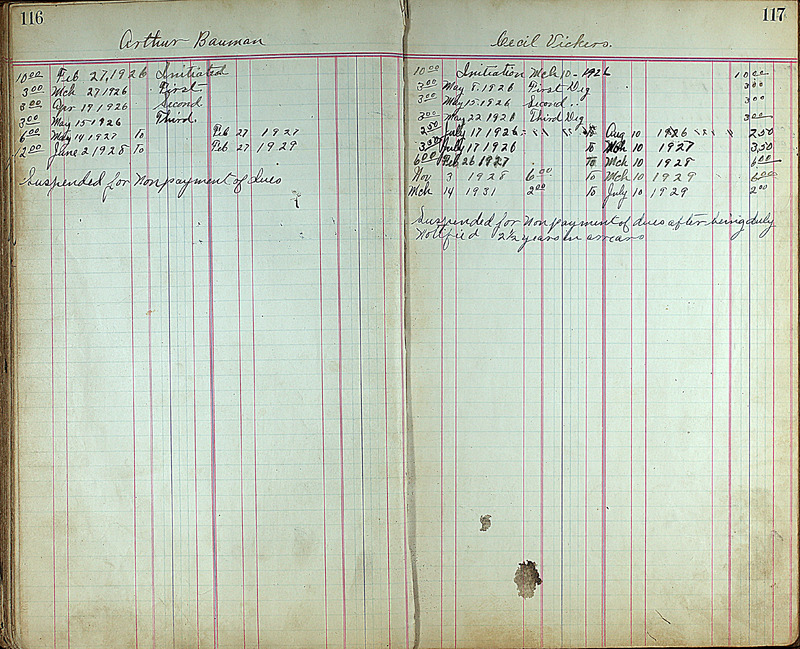 116
Arthur Bauman
10 00 Feb 27, 1926 Initiated
3 00 Mch 27 1926 First
3 00 Apr 17 1926 Second
3 00 May 15 1926 Third.
6 00 May 14 1927 To Feb 27 1927
12 00 June 2 1928 To Feb 27 1929
Suspended for Nonpayment of dues
117
Cecil Vickers.
10 00 Initiation Mch 10 - 1926 10 00
3 00 May 8 1926 First Deg 3 00
3 00 May 15 1926 Second " 3 00
3 00 May 22 1926 Third Deg 3 00
2 50 July 17 1926 To Aug 10 1926 2 50
3 50 July 17 1926 To Mch 10 1927 3 50
6 00 Feb 26 1927 To Mch 10 1928 6 00
Nov 3 1928 6 00 To Mch 10 1929 6 00
Mch 14 1931 2 00 To July 10 1929 2 00
Suspended for Nonpayment of dues after being duly
Notified 2½ years in arears